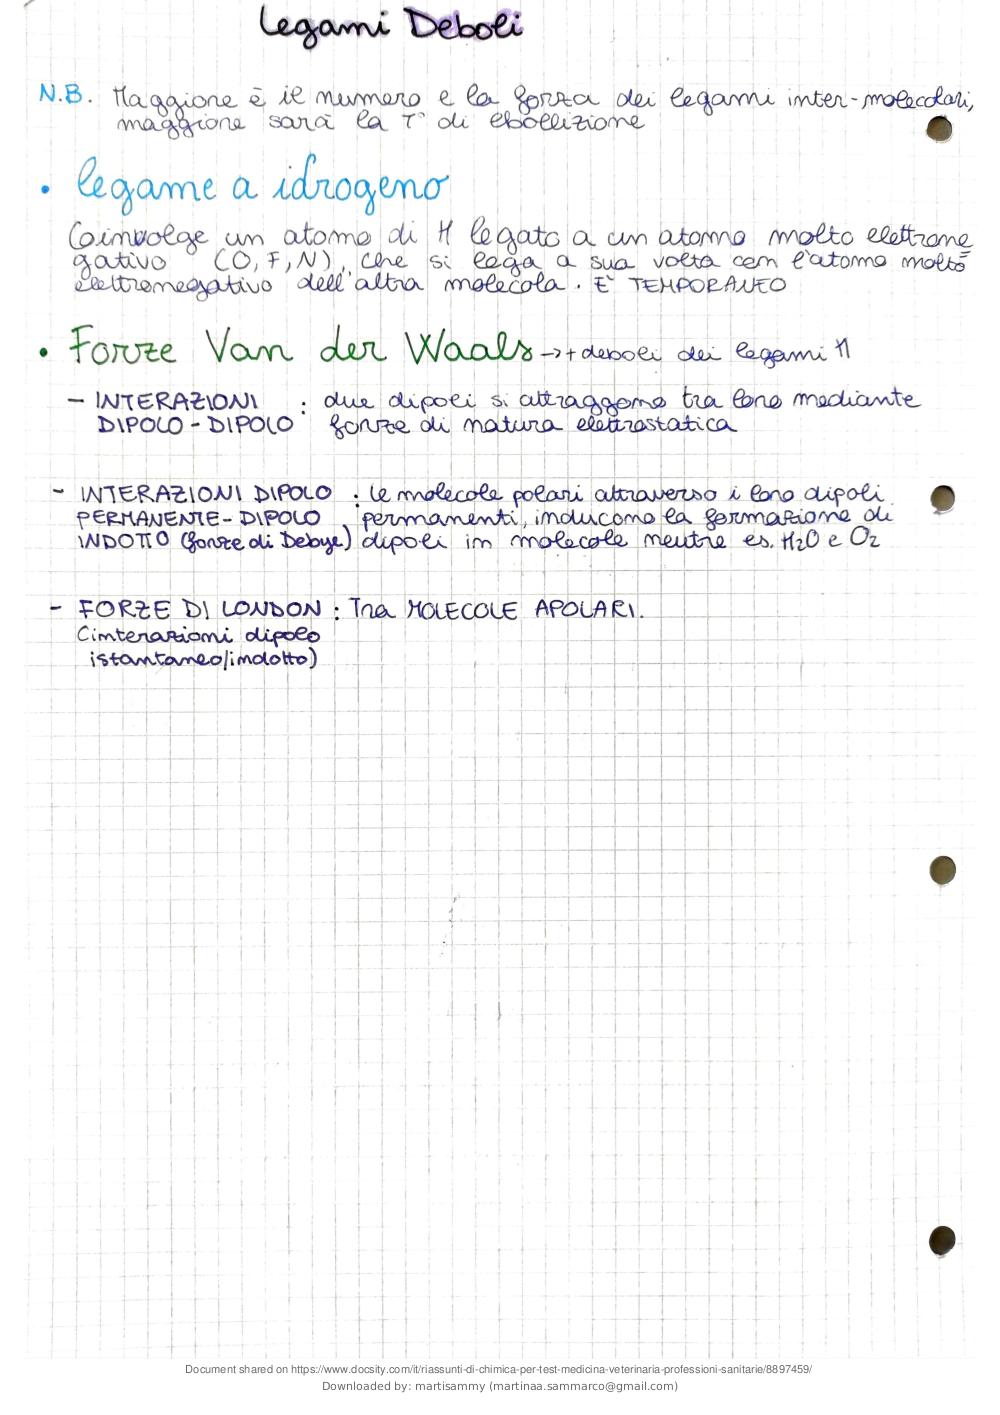 Legami Deboli
N.B. Maggiore è il numero e la forza dei legami inter-molecolari,
maggiore sarà la T° di ebollizione
• legame a idrogeno
Coinvolge un atomo di H legato a un atomo molto elettrone
gativo (O, F, N), che si lega a sua volta con l'atomo molto
elettronegativo dell'altra molecola. È TEMPORANEO
• Forze Van der Waals → + deboli dei legami H
- INTERAZIONI : due dipoli si attraggono tra loro mediante
DIPOLO-DIPOLO forze di natura elettrostatica
- INTERAZIONI DIPOLO : le molecole polari attraverso i loro dipoli
PERMANENTE-DIPOLO permanenti, inducono la formazione di
INDOTTO (forze di Debye) dipoli in molecole neutre es. H2O e O2
- FORZE DI LONDON : Tra MOLECOLE APOLARI.
(interazioni dipolo
istantaneo/indotto)
Document shared on https://www.docsity.com/it/riassunti-di-chimica-per-test-medicina-veterinaria-professioni-sanitarie/8897459/
Downloaded by: martisammy (martinaa.sammarco@gmail.com)